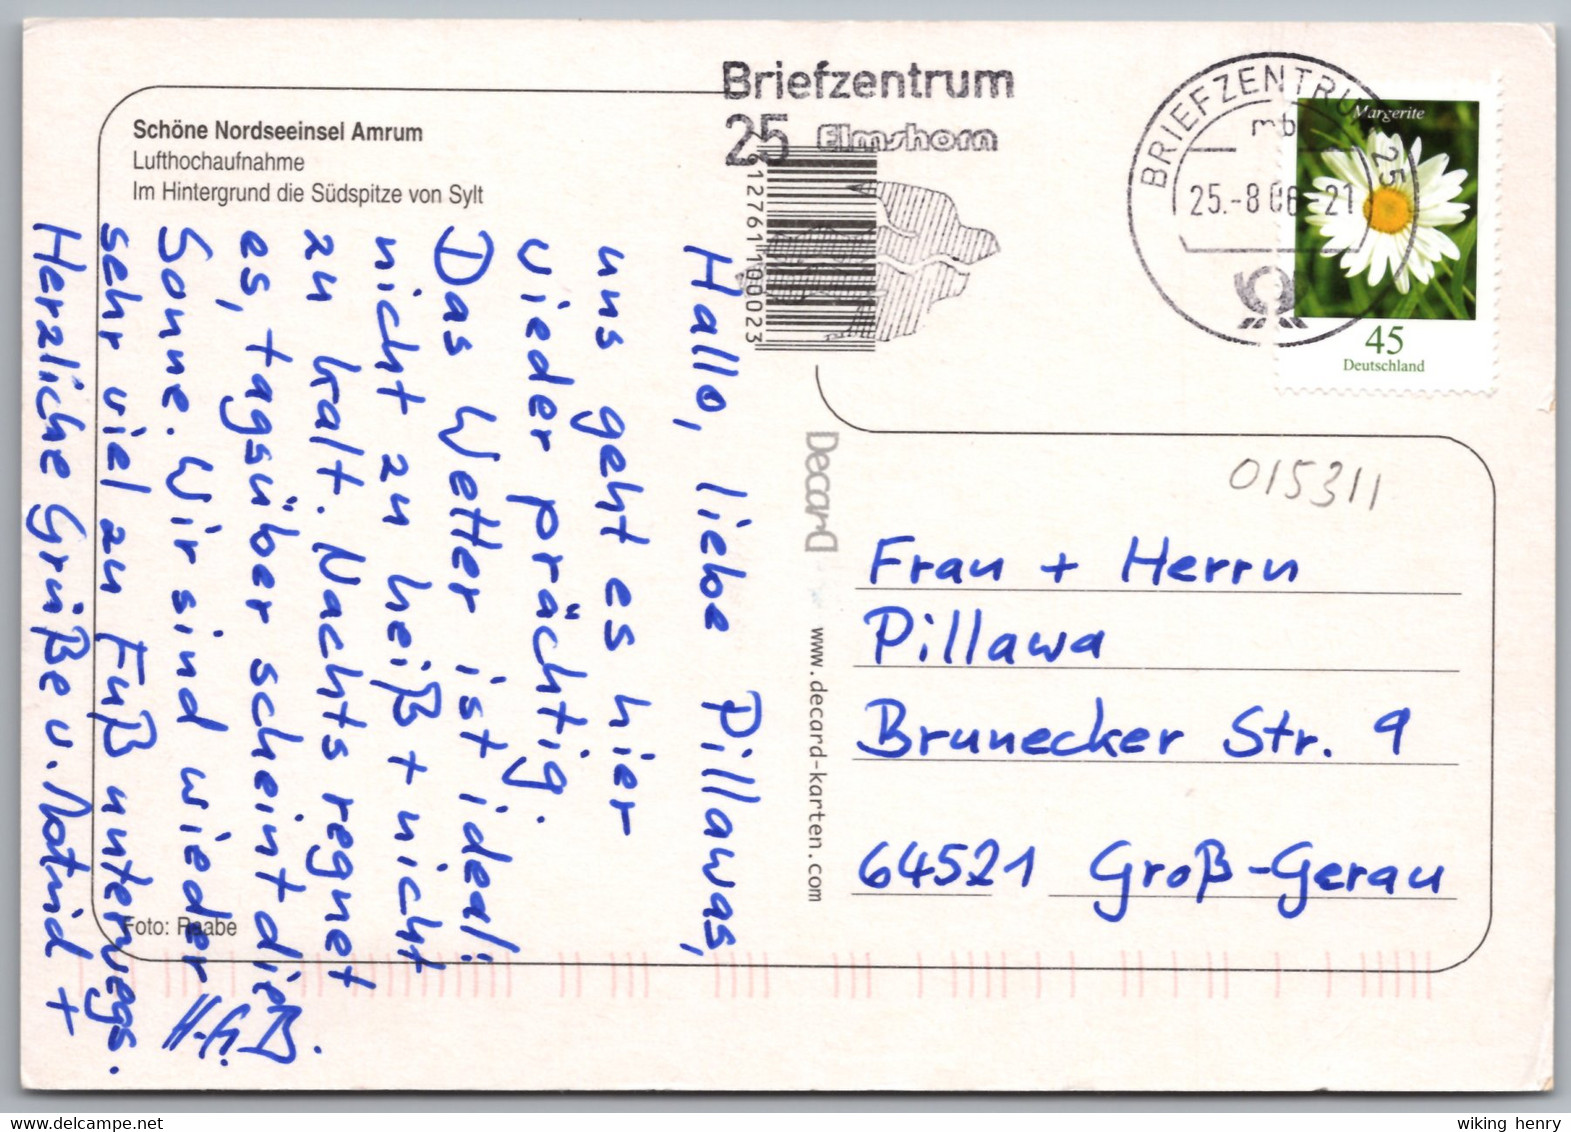 Schöne Nordseeinsel Amrum
Lufthochaufnahme
Im Hintergrund die Südspitze von Sylt
Hallo, liebe Pillawas,
uns geht es hier
wieder prächtig.
Das Wetter ist ideal:
nicht zu heiß + nicht
zu kalt. Nachts regnet
es, tagsüber scheint die
Sonne. Wir sind wieder
sehr viel zu Fuß unterwegs.
Herzliche Grüße v. +
Foto: Raabe
Briefzentrum
25 Elmshorn
12761 100023
BRIEFZENTRUM 25
mb
25.-8 06-21
Margerite
45
Deutschland
Decard
www.decard-karten.com
015311
Frau + Herrn
Pillawa
Brunecker Str. 9
64521 Groß-Gerau
wiking henry